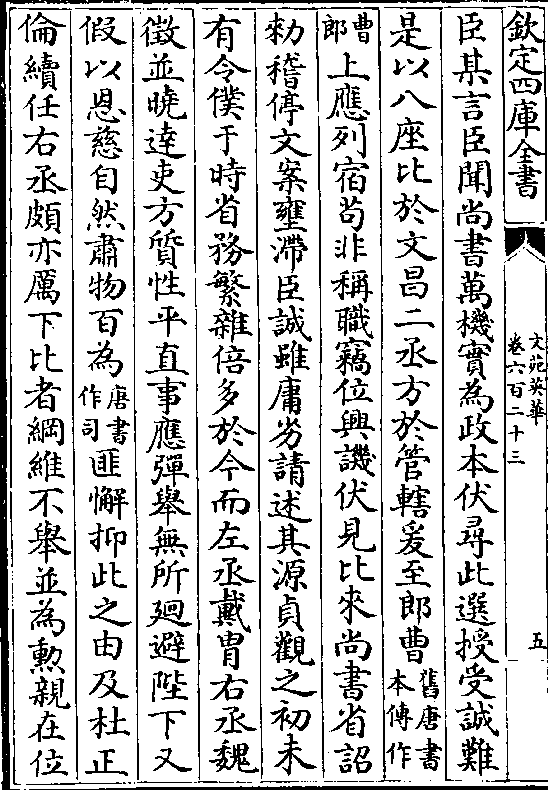 欽定四庫全書
文苑英華
卷六百二十三
五
臣某言臣聞尚書萬機實為政本伏尋此選授受誠難
是以八座比於文昌二丞方於管轄爰至郎曹舊唐書本傳作
曹郎上應列宿苟非稱職竊位興譏伏見比來尚書省詔
勑稽停文案壅滯臣誠雖庸劣請述其源貞觀之初未
有令僕于時省務繁雜倍多於今而左丞戴胄右丞魏
徵並曉達吏方質性平直事應彈舉無所廻避陛下又
假以恩慈自然肅物百為唐書作司匪懈抑此之由及杜正
倫續任右丞頗亦厲下比者綱維不舉並為勲親在位